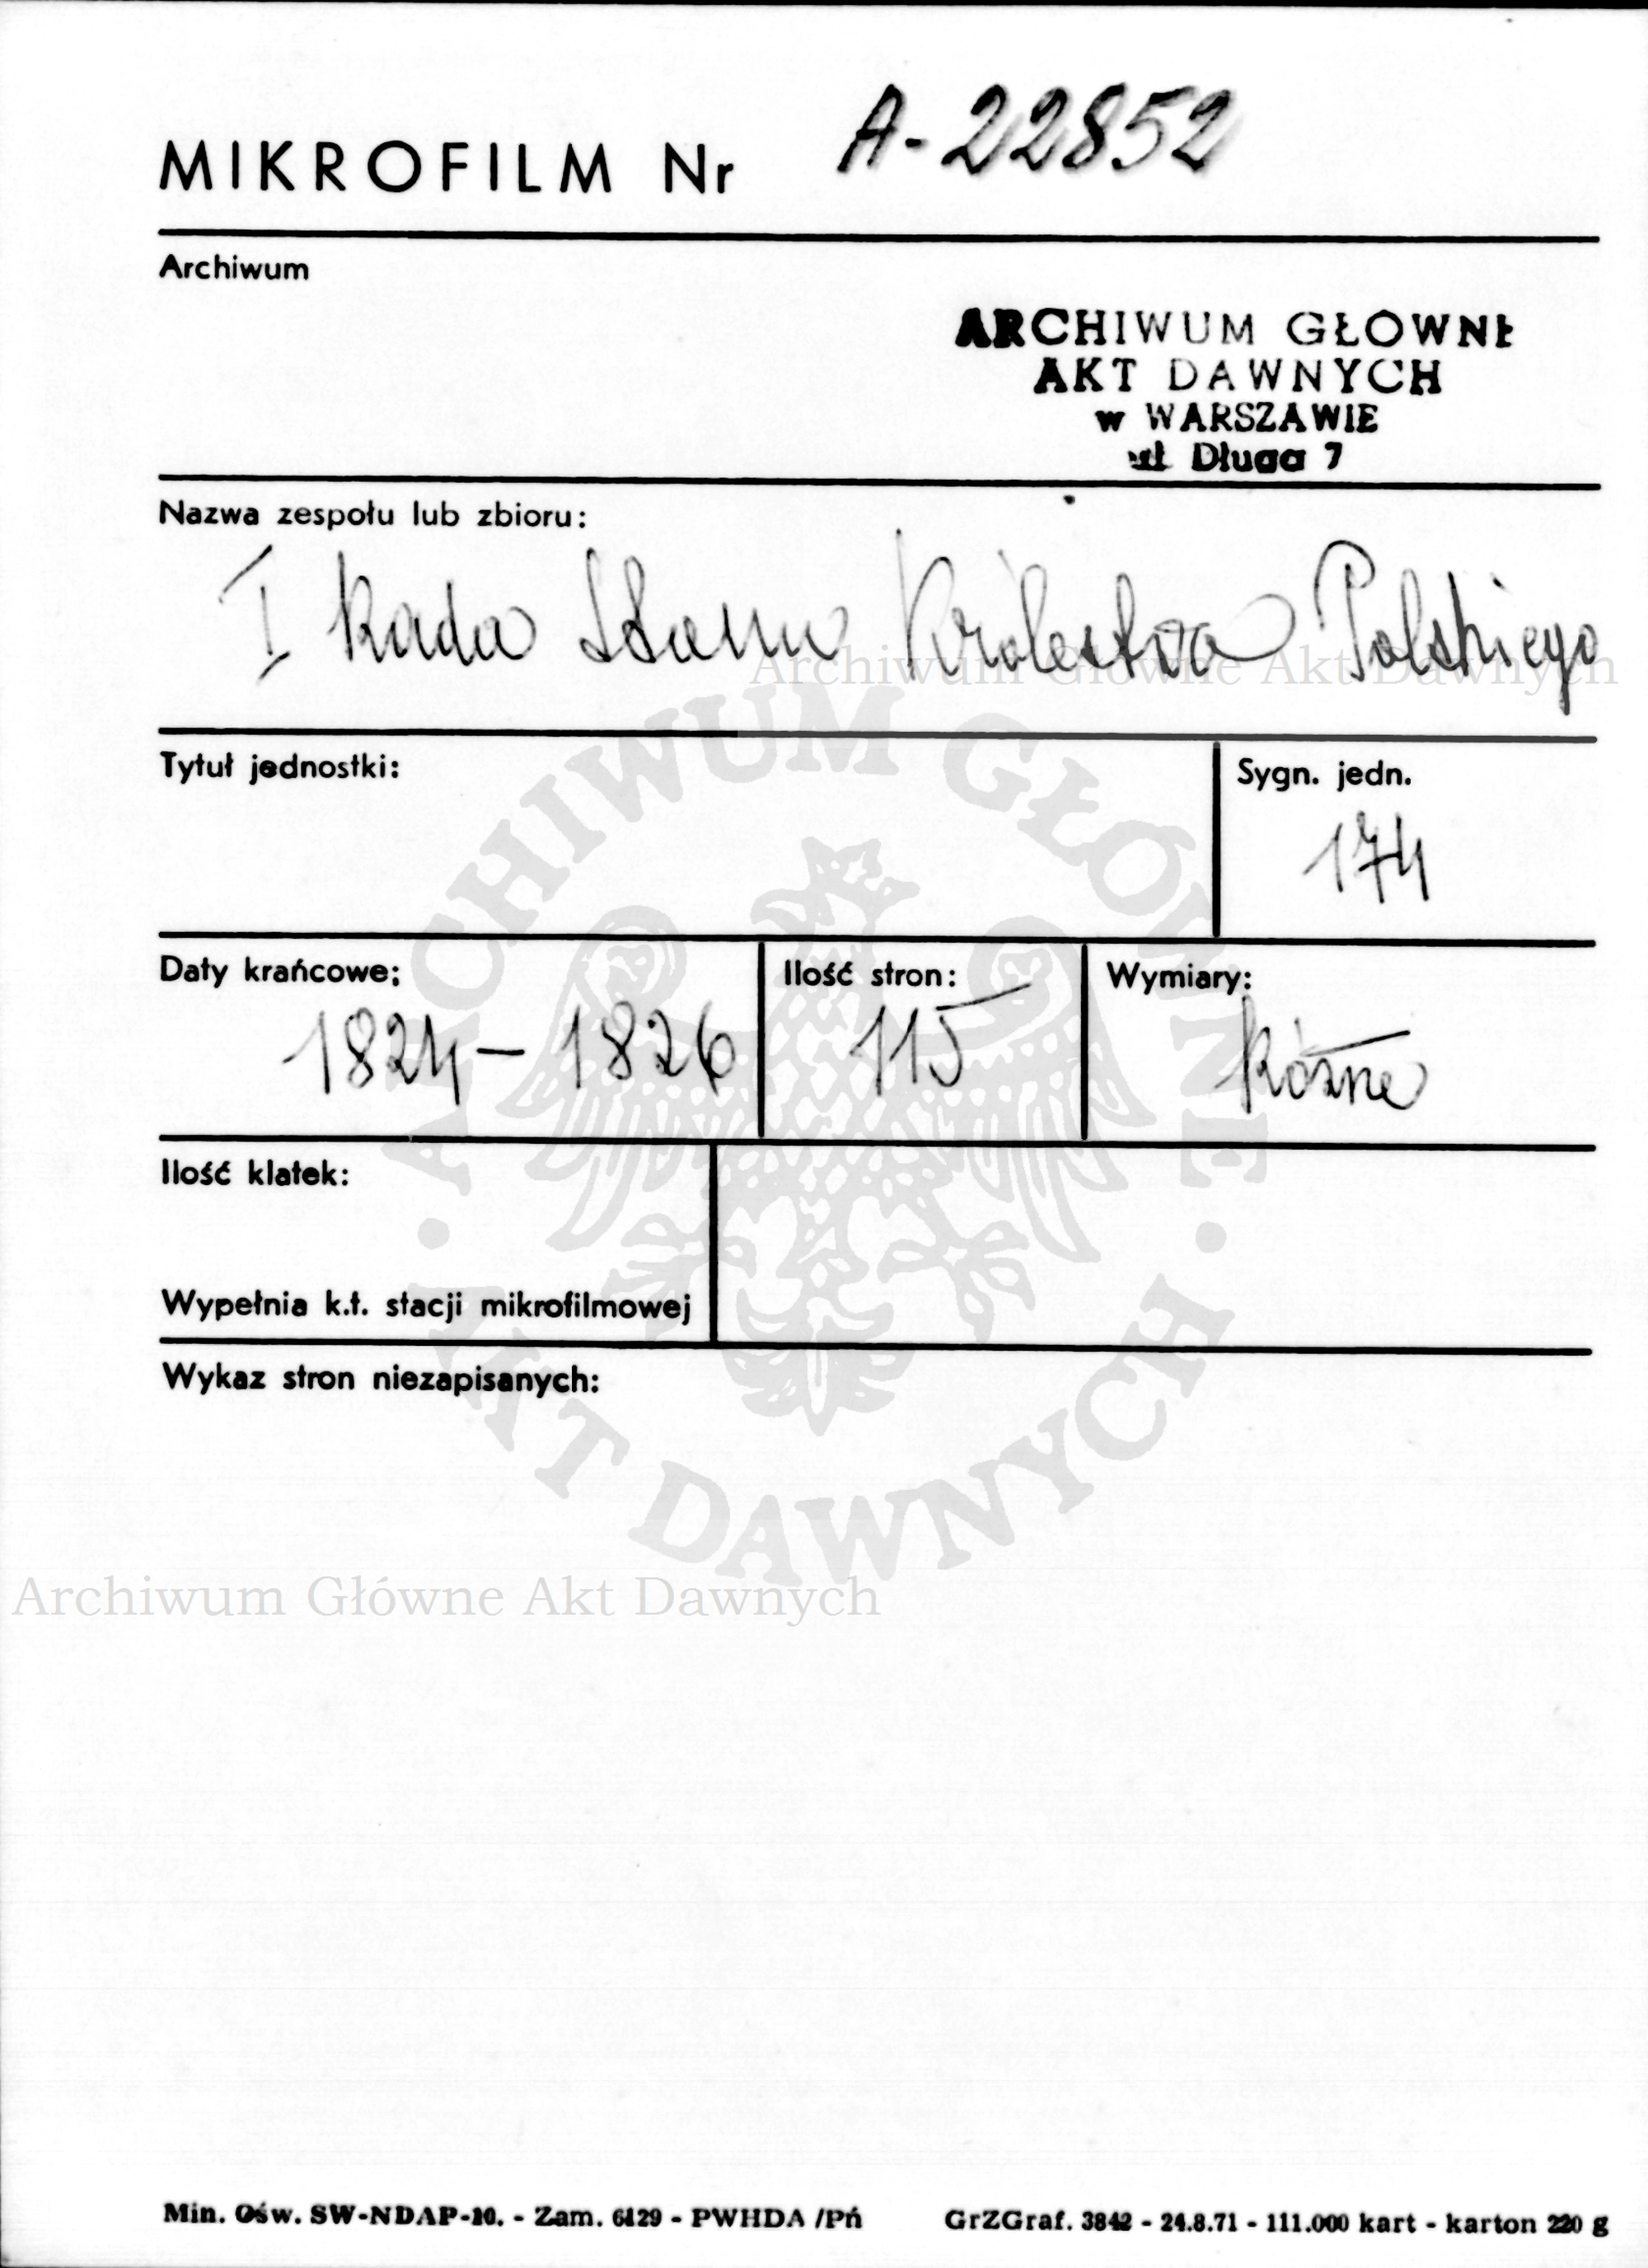 MIKROFILM Nr A-22852
Archiwum
ARCHIWUM GŁOWNE
AKT DAWNYCH
w WARSZAWIE
ul Długa 7
Nazwa zespołu lub zbioru:
I Rada Stanu Królestwa Polskiego
Archiwum Główne Akt Dawnych
Tytuł jednostki:
Sygn. jedn.
174
Daty krańcowe:
1824 – 1826
Ilość stron:
115
Wymiary:
Różne
Ilość klatek:
Wypełnia k.t. stacji mikrofilmowej
Wykaz stron niezapisanych:
ARCHIWUM GŁÓWNE · AKT DAWNYCH ·
Archiwum Główne Akt Dawnych
Min. Ośw. SW-NDAP-10. - Zam. 6129 - PWHDA /Pń GrZGraf. 3842 - 24.8.71 - 111.000 kart - karton 220 g